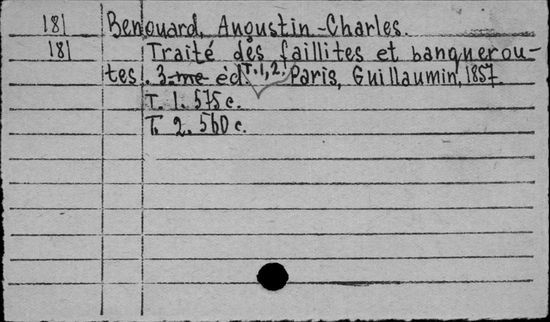 181 Benouard, Augustin-Charles.
181 Traité des faillites et banquerou-
tes. 3-me éd. T. 1, 2. Paris, Guillaumin, 1857.
T. 1. 575 c.
T. 2. 560 c.